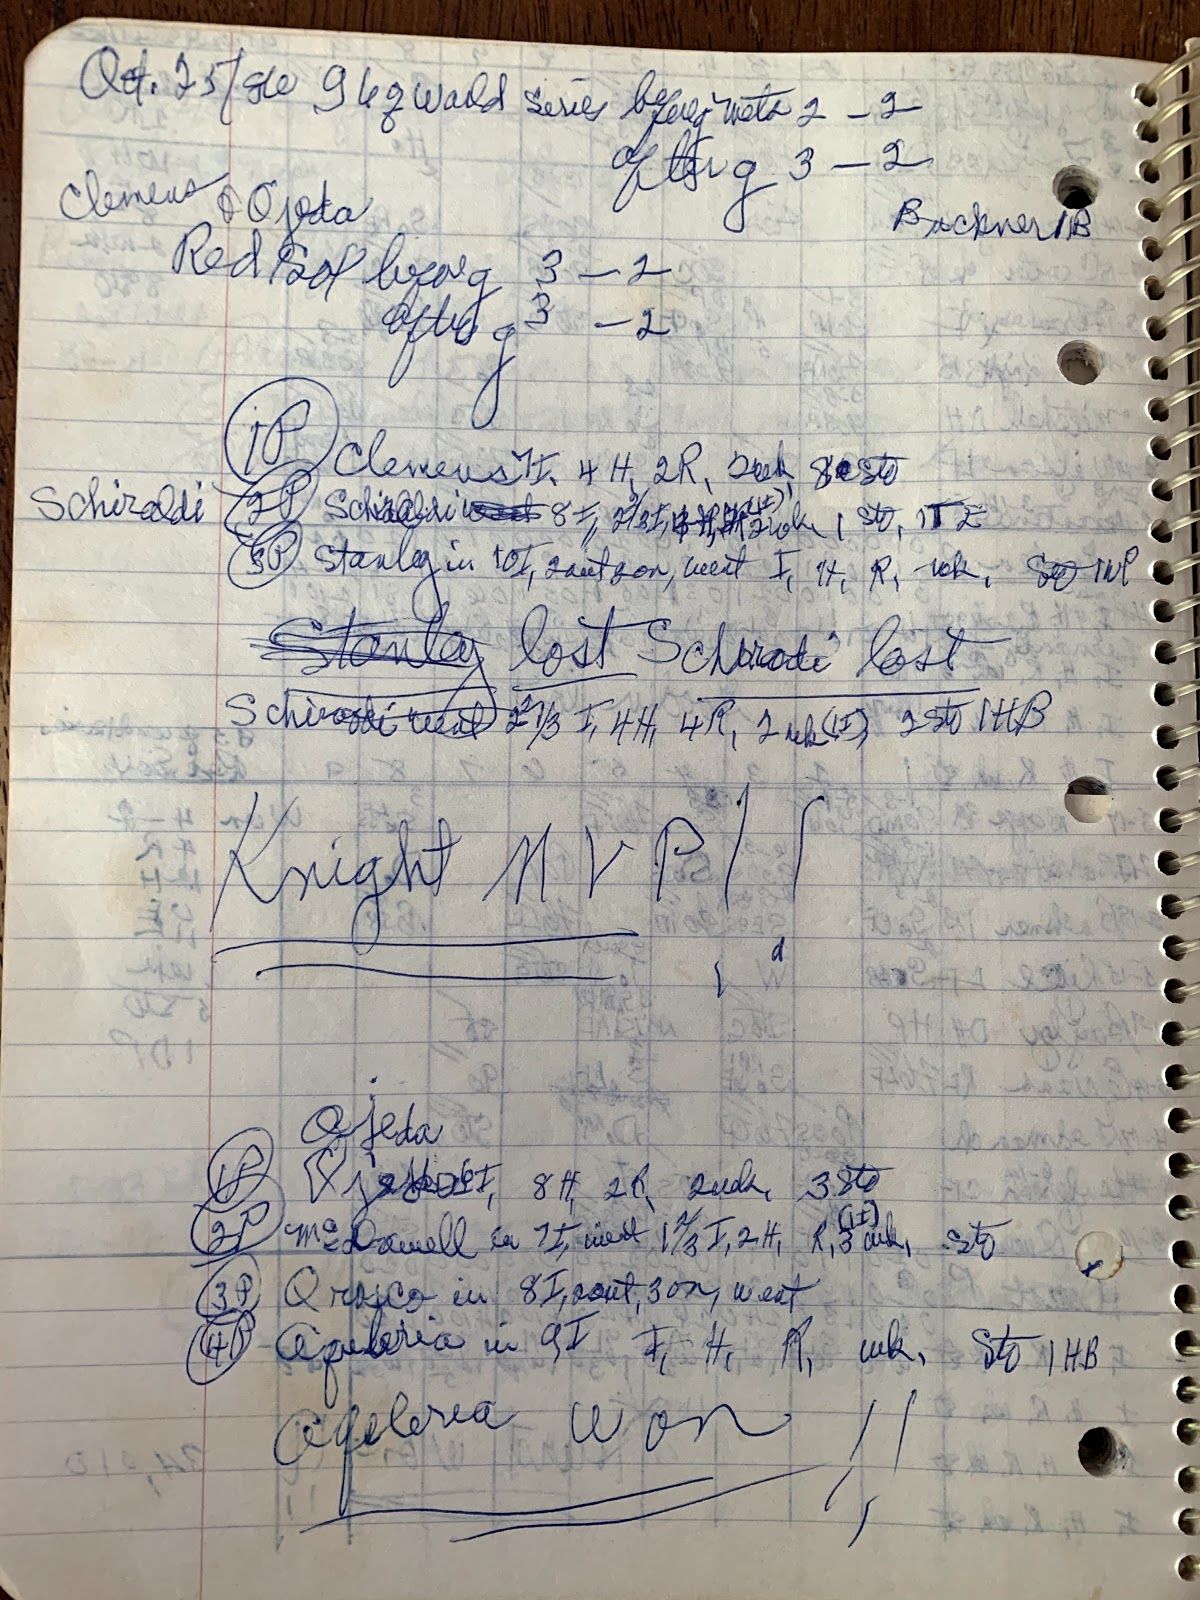 Oct. 25/86 g World Series before g Mets 2 - 2
after g 3 - 2
Clemens & Ojeda
Buckner 1B
Red Sox before g 3 - 2
after g 3 - 2
1P Clemens 7I, 4H, 2R, 2wk, 8 Sto
Schiraldi 2P Schiraldi 8I, 1 Sto,
3P Stanley in 10I, 2 out 2 on, went I, H, R, wk, Sto 1WP
Stanley lost Schiraldi lost
Schiraldi went 2 2/3 I, 4H, 4R, 2wk (1I), 2 Sto 1HB
Knight MVP!!
Ojeda
1P I, 8H, 2R, 2wk, 3 Sto
2P McDowell in 7I, went 1 2/3 I, 2H, R, 3 (1I) wk, Sto
3P Orosco in 8I, 2 out, 3 on, went
4P Aguleria in 9I I, H, R, wk, Sto 1HB
Aguleria won!!